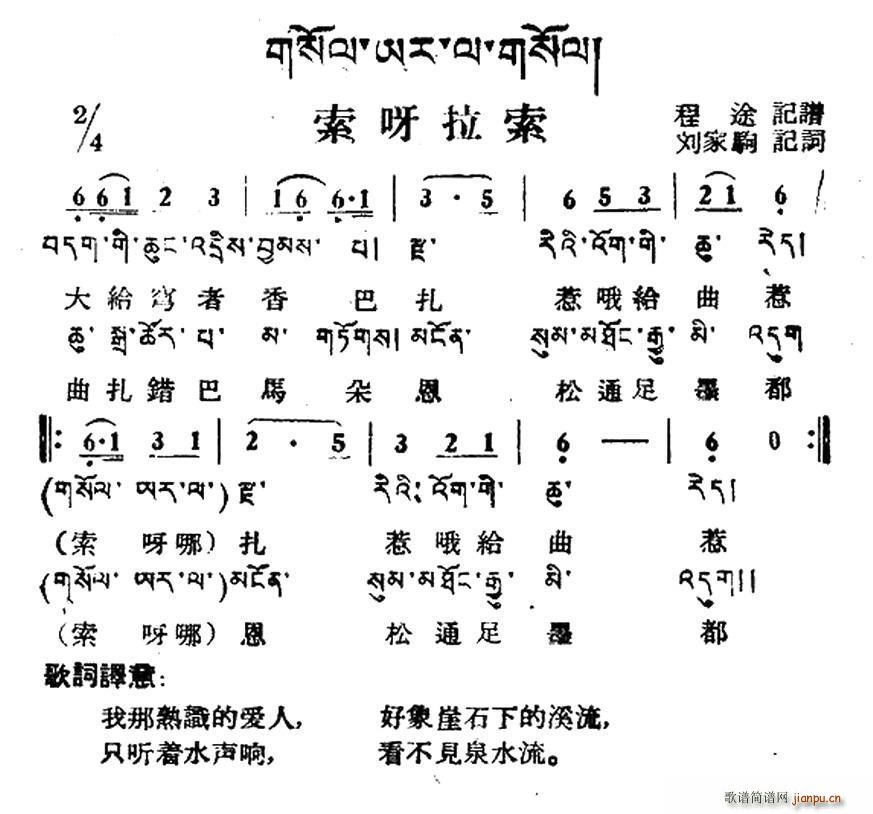 གསོལ་ཨར་ལ་གསོལ།
2/4 索呀拉索 程途 記譜
刘家駒 記詞
6 6 1 2 3 | 1 6 6·1 | 3 · 5 | 6 5 3 | 2 1 6 /
བདག་གི་ཆུང་འདྲིས་བྱམས་ པ། རྫ་ རིའི་འོག་གི་ ཆུ་ རེད།
大給穹者香 巴扎 惹哦給曲惹
ཆུ་ སྒྲ་ཚོར་ པ་ མ་ གཏོགས། མངོན་ སུམ་མཐོང་རྒྱུ་ མི་ འདུག
曲扎錯巴馬朵恩 松通足墨都
6·1 3 1 | 2 · 5 | 3 2 1 | 6 — | 6 0
(གསོལ་ ཨར་ལ་) རྫ་ རིའི་ འོག་གི་ ཆུ་ རེད།
(索 呀哪) 扎 惹哦給 曲 惹
(གསོལ་ ཨར་ལ་) མངོན་ སུམ་མཐོང་རྒྱུ་ མི་ འདུག།
(索 呀哪) 恩 松通足 墨 都
歌詞譯意:
我那熟識的爱人, 好象崖石下的溪流,
只听着水声响, 看不見泉水流。
歌谱简谱网 jianpu.cn